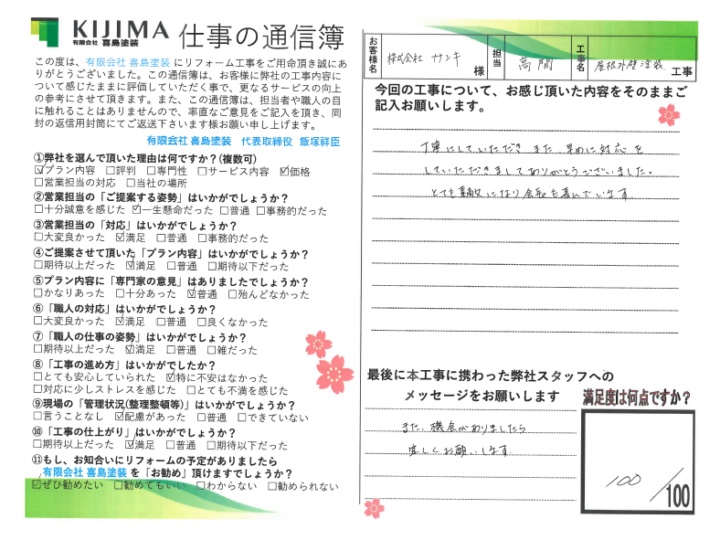 KIJIMA
有限会社 喜島塗装
仕事の通信簿
この度は、有限会社 喜島塗装 にリフォーム工事をご用命頂き誠にあ
りがとうございました。この通信簿は、お客様に弊社の工事内容に
ついて感じたままに評価していただく事で、更なるサービスの向上
の参考にさせて頂きます。また、この通信簿は、担当者や職人の目
に触れることはありませんので、率直なご意見をご記入を頂き、同
封の返信用封筒にてご返送下さいます様お願い申し上げます。
有限会社 喜島塗装 代表取締役 飯塚祥臣
①弊社を選んで頂いた理由は何ですか？(複数可)
☑プラン内容 □評判 □専門性 □サービス内容 ☑価格
□営業担当の対応 □当社の場所
②営業担当の「ご提案する姿勢」はいかがでしょうか？
□十分誠意を感じた ☑一生懸命だった □普通 □事務的だった
③営業担当の「対応」はいかがでしょうか？
□大変良かった ☑満足 □普通 □事務的だった
④ご提案させて頂いた「プラン内容」はいかがでしょうか？
□期待以上だった ☑満足 □普通 □期待以下だった
⑤プラン内容に「専門家の意見」はありましたでしょうか？
□かなりあった □十分あった ☑普通 □殆んどなかった
⑥「職人の対応」はいかがでしょうか？
□大変良かった ☑満足 □普通 □良くなかった
⑦「職人の仕事の姿勢」はいかがでしょうか？
□期待以上だった ☑満足 □普通 □雑だった
⑧「工事の進め方」はいかがでしたか？
□とても安心していられた ☑特に不安はなかった
□対応に少しストレスを感じた □とても不満を感じた
⑨現場の「管理状況(整理整頓等)」はいかがでしょうか？
□言うことなし ☑配慮があった □普通 □できていない
⑩「工事の仕上がり」はいかがでしょうか？
□期待以上だった ☑満足 □普通 □期待以下だった
⑪もし、お知合いにリフォームの予定がありましたら
有限会社 喜島塗装 を「お勧め」頂けますでしょうか？
☑ぜひ勧めたい □勧めてもいい □わからない □勧められない
お客様名 株式会社 サンキ 様 担当 高間 工事名 屋根外壁塗装 工事
今回の工事について、お感じ頂いた内容をそのままご
記入お願いします。
丁寧にしていただき また、早めに対応を
していただきましてありがとうございました。
とても素敵になり 会長も喜んでいます。
最後に本工事に携わった弊社スタッフへの
メッセージをお願いします
また、機会がありましたら
宜しくお願いします
満足度は何点ですか？
100/100